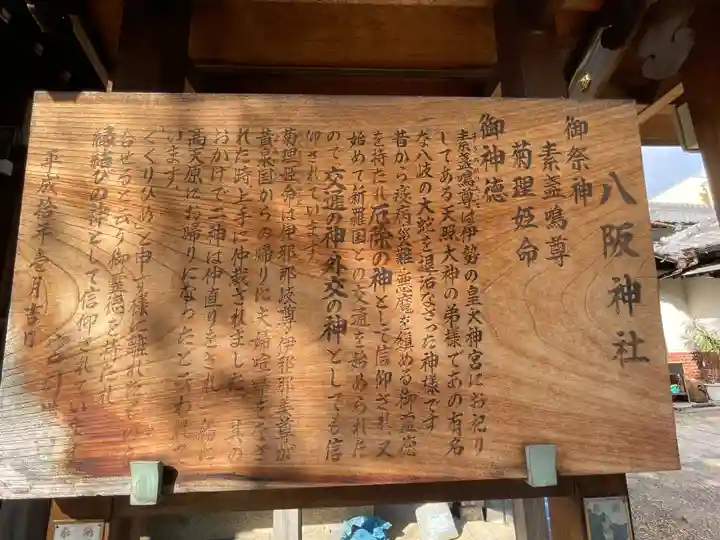 八阪神社
御祭神
素盞鳴尊
菊理姫命
御神徳
素盞鳴尊は伊勢の皇大神宮にお祀り
してある天照大神の弟様であの有名
な八岐の大蛇を退治なさった神様です
昔から疫病災難悪魔を鎮める御霊徳
を持たれ厄除の神として信仰され又
始めて新羅国との交通を始められた
ので交通の神・外交の神としても信
仰されています。
菊理姫命は伊邪那岐尊伊邪那美尊が
黄泉国からの帰りに夫婦喧嘩をなさ
れた時上手に仲裁されました。其の
おかげで二神は仲直りをされ
高天原にお帰りになったと云われて
います。
くくりひめと申す様に離れたものを
合せると云う御霊徳を持たれ
縁結びの神として信仰されています
平成拾年壱月吉日